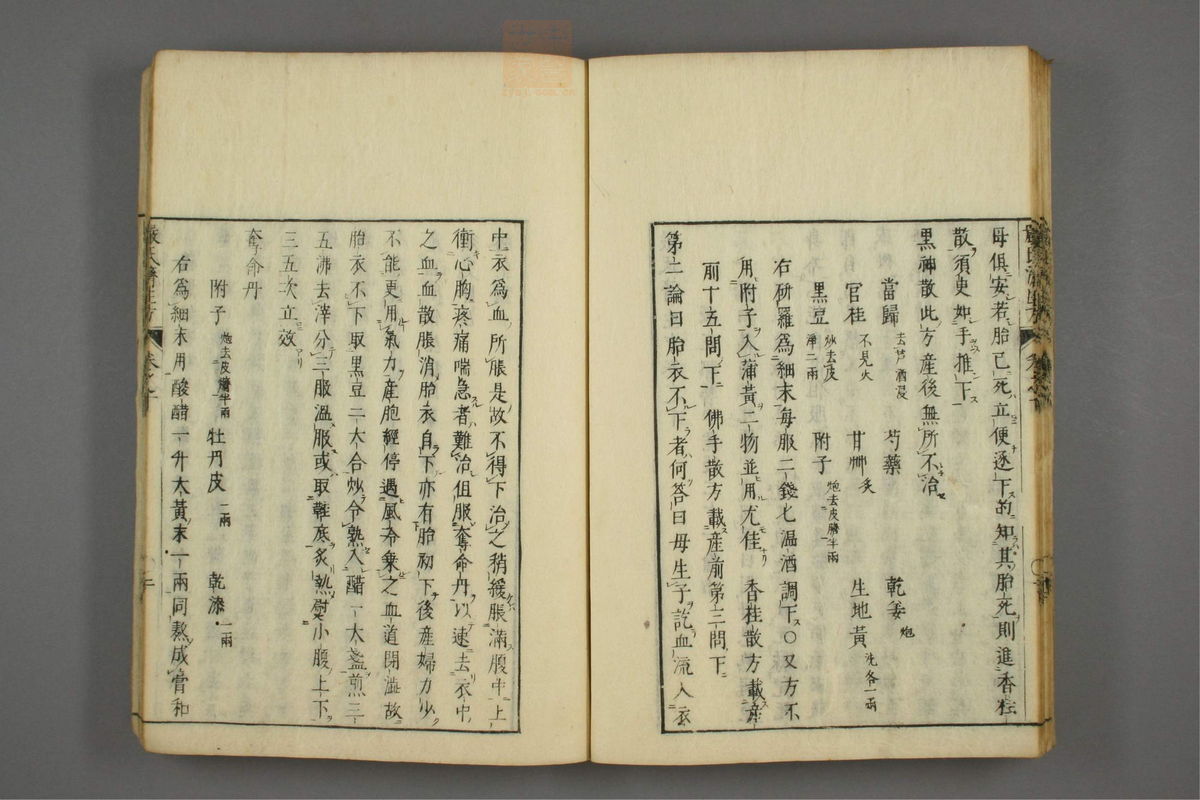 母俱安若胎已死立便逐下的知其胎死則進香桂
散須更如手推下
黒神散此方産後無所不治
當歸 去芦酒浸 芍藥 乾姜 炮
官桂 不見火 甘艸 炙 生地黃 洗各一兩
黒豆 炒去皮淨二兩 附子 炮去皮臍半兩
右硏羅爲細末毎服二錢七温酒調下○又方不
用附子入蒲黃二物並用尤佳 香桂散方載産
前十五問下 佛手散方載産前第三問下
第二論曰胎衣不下者何答曰母生子訖血流入衣
中衣爲血所脹是故不得下治之稍緩脹滿腹中上
衝心胸疼痛喘急者難治但服奪命丹以速去衣中
之血血散脹消胎衣自下亦有胎初下後産婦力少
不能更用氣力産胞經停遇風冷乗之血道閉澁故
胎衣不下取黒豆二大合炒令熟入醋一大盞煎三
五沸去滓分三服温服或取鞋底炙熱熨小腹上下
三五次立效
奪命丹
附子 炮去皮臍半兩 牡丹皮 一兩 乾漆 一兩
右爲細末用酸醋一升大黃末一兩同熬成膏和